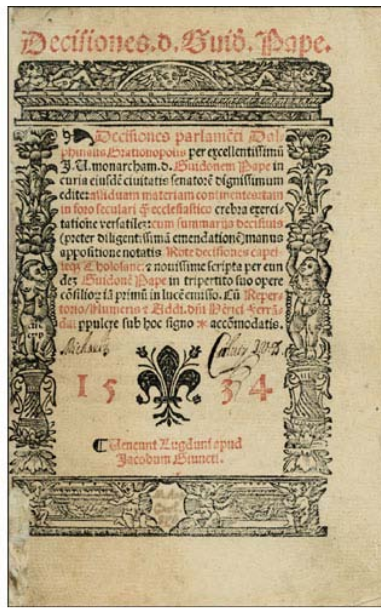 Decisiones.d.Guid̄. Pape.
Decisiones parlamēti Dal-
phinalis Grationopolis per excellentissimū
J.U.monarcham.d.Guidonem Pape in
curia eiusdē ciuitatis senatorē dignissimum
edite: assiduam materiam continentes tam
in foro seculari q̄ ecclesiastico crebra exerci-
tatione versatiles: cum summarijs decisiuis
(preter diligentissimā emendationē) manus
appositione notatis Rote decisiones capel-
Tholosane: ⁊ nouissime scripta per eun
dez Guidonē Pape in tripertito suo opere
cōsilioꝝ iā primū in lucē emisso. Cū Reper-
torio/Numeris ⁊ Addi. dñi
ppulcre sub hoc signo * accōmodatis.
1 5 3 4
¶ Veneunt Lugduni apud
Jacobum Giuncti.